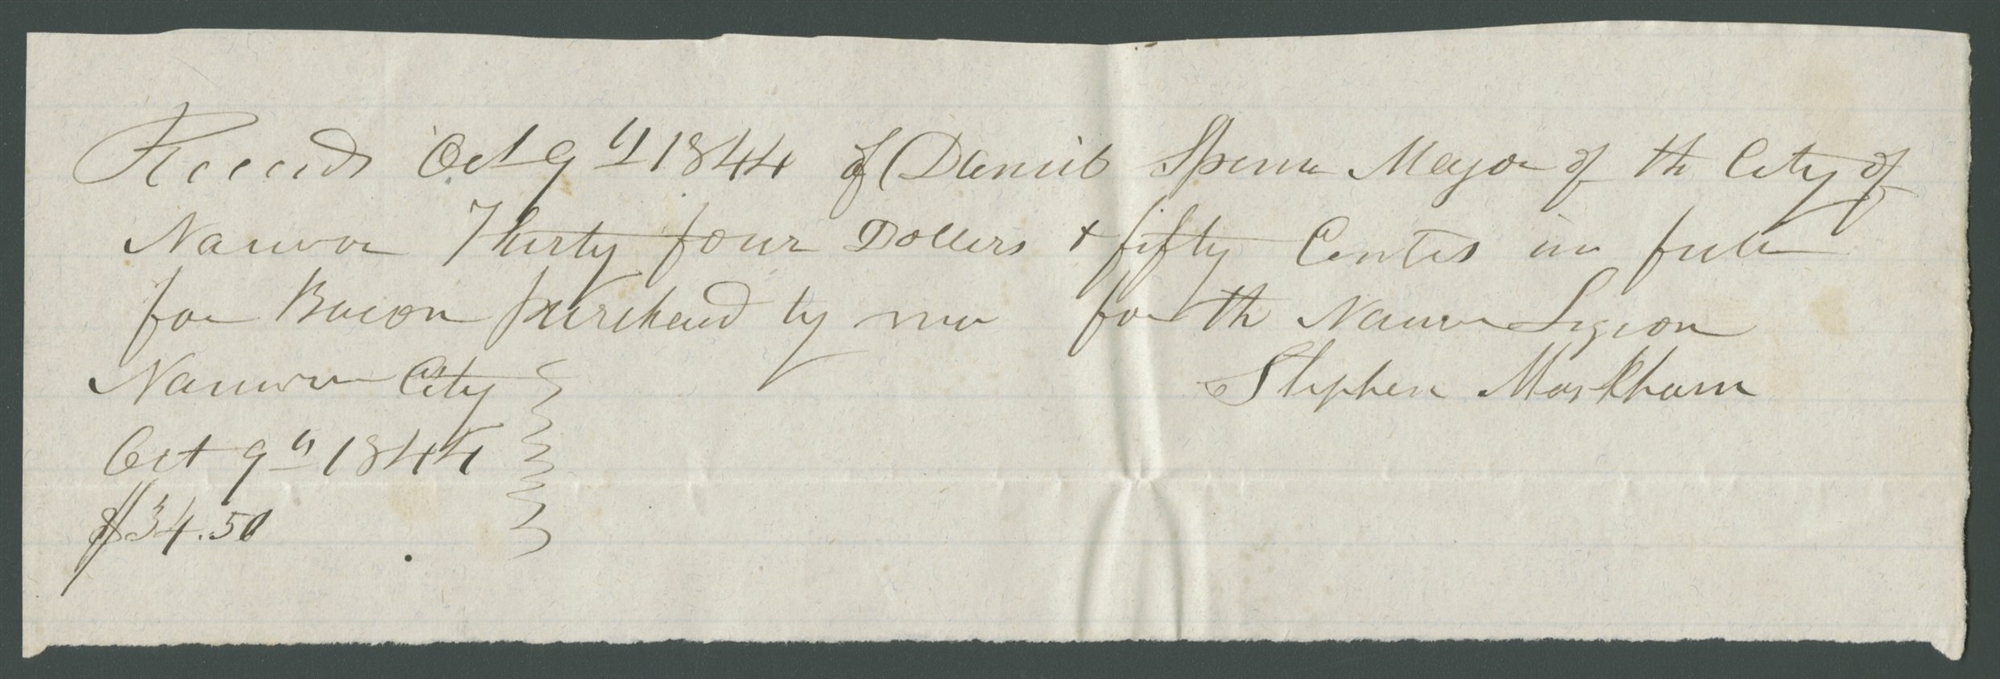 Receed Oct 9th 1844 of Daniel Spencer Mayor of the City of
Nauvoo Thirty four Dollers & fifty Centes in full
for Bacon purchased by me for the Nauvoo Legion
Stephen Markham
Nauvoo City
Oct 9th 1844
$34.50